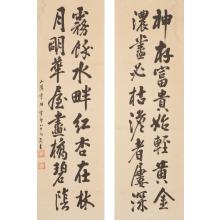 神存富貴始輕黃金
濃盡必枯淺者屢深
霧餘水畔紅杏在林
月明華屋畫橋碧陰